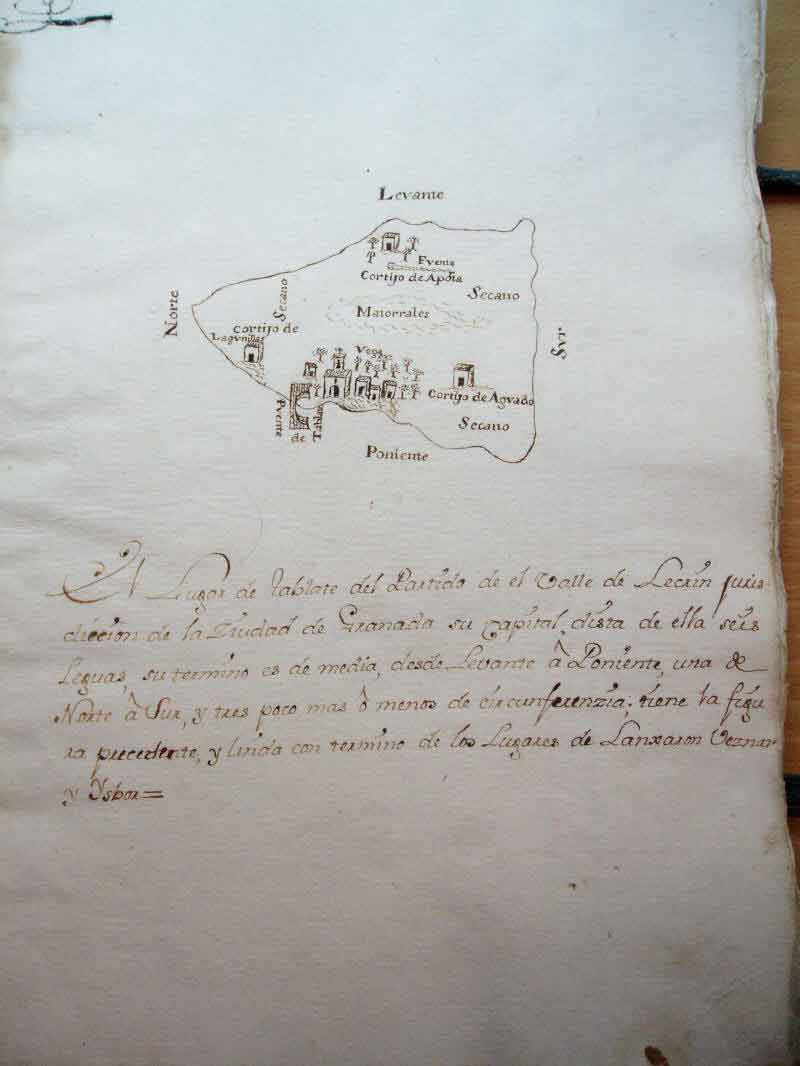 Levante
Norte
Secano
Fuente
Cortijo de Apoia
Secano
Matorrales
Cortijo de
Lagunillas
Vega
Sur
Cortijo de Aguado
Puente
de
Tablate
Secano
Poniente
El Lugar de tablate del Partido de el Valle de Lecrin juris
diccion de la Ciudad de Granada su Capital, dista de ella seis
Leguas, su termino es de media, desde Levante â Poniente, una de
Norte â Sur, y tres poco mas ô menos de circunferenzia; tiene la figu
ra precedente, y linda con termino de los Lugares de Lanxaron Veznar
y Ysbor=